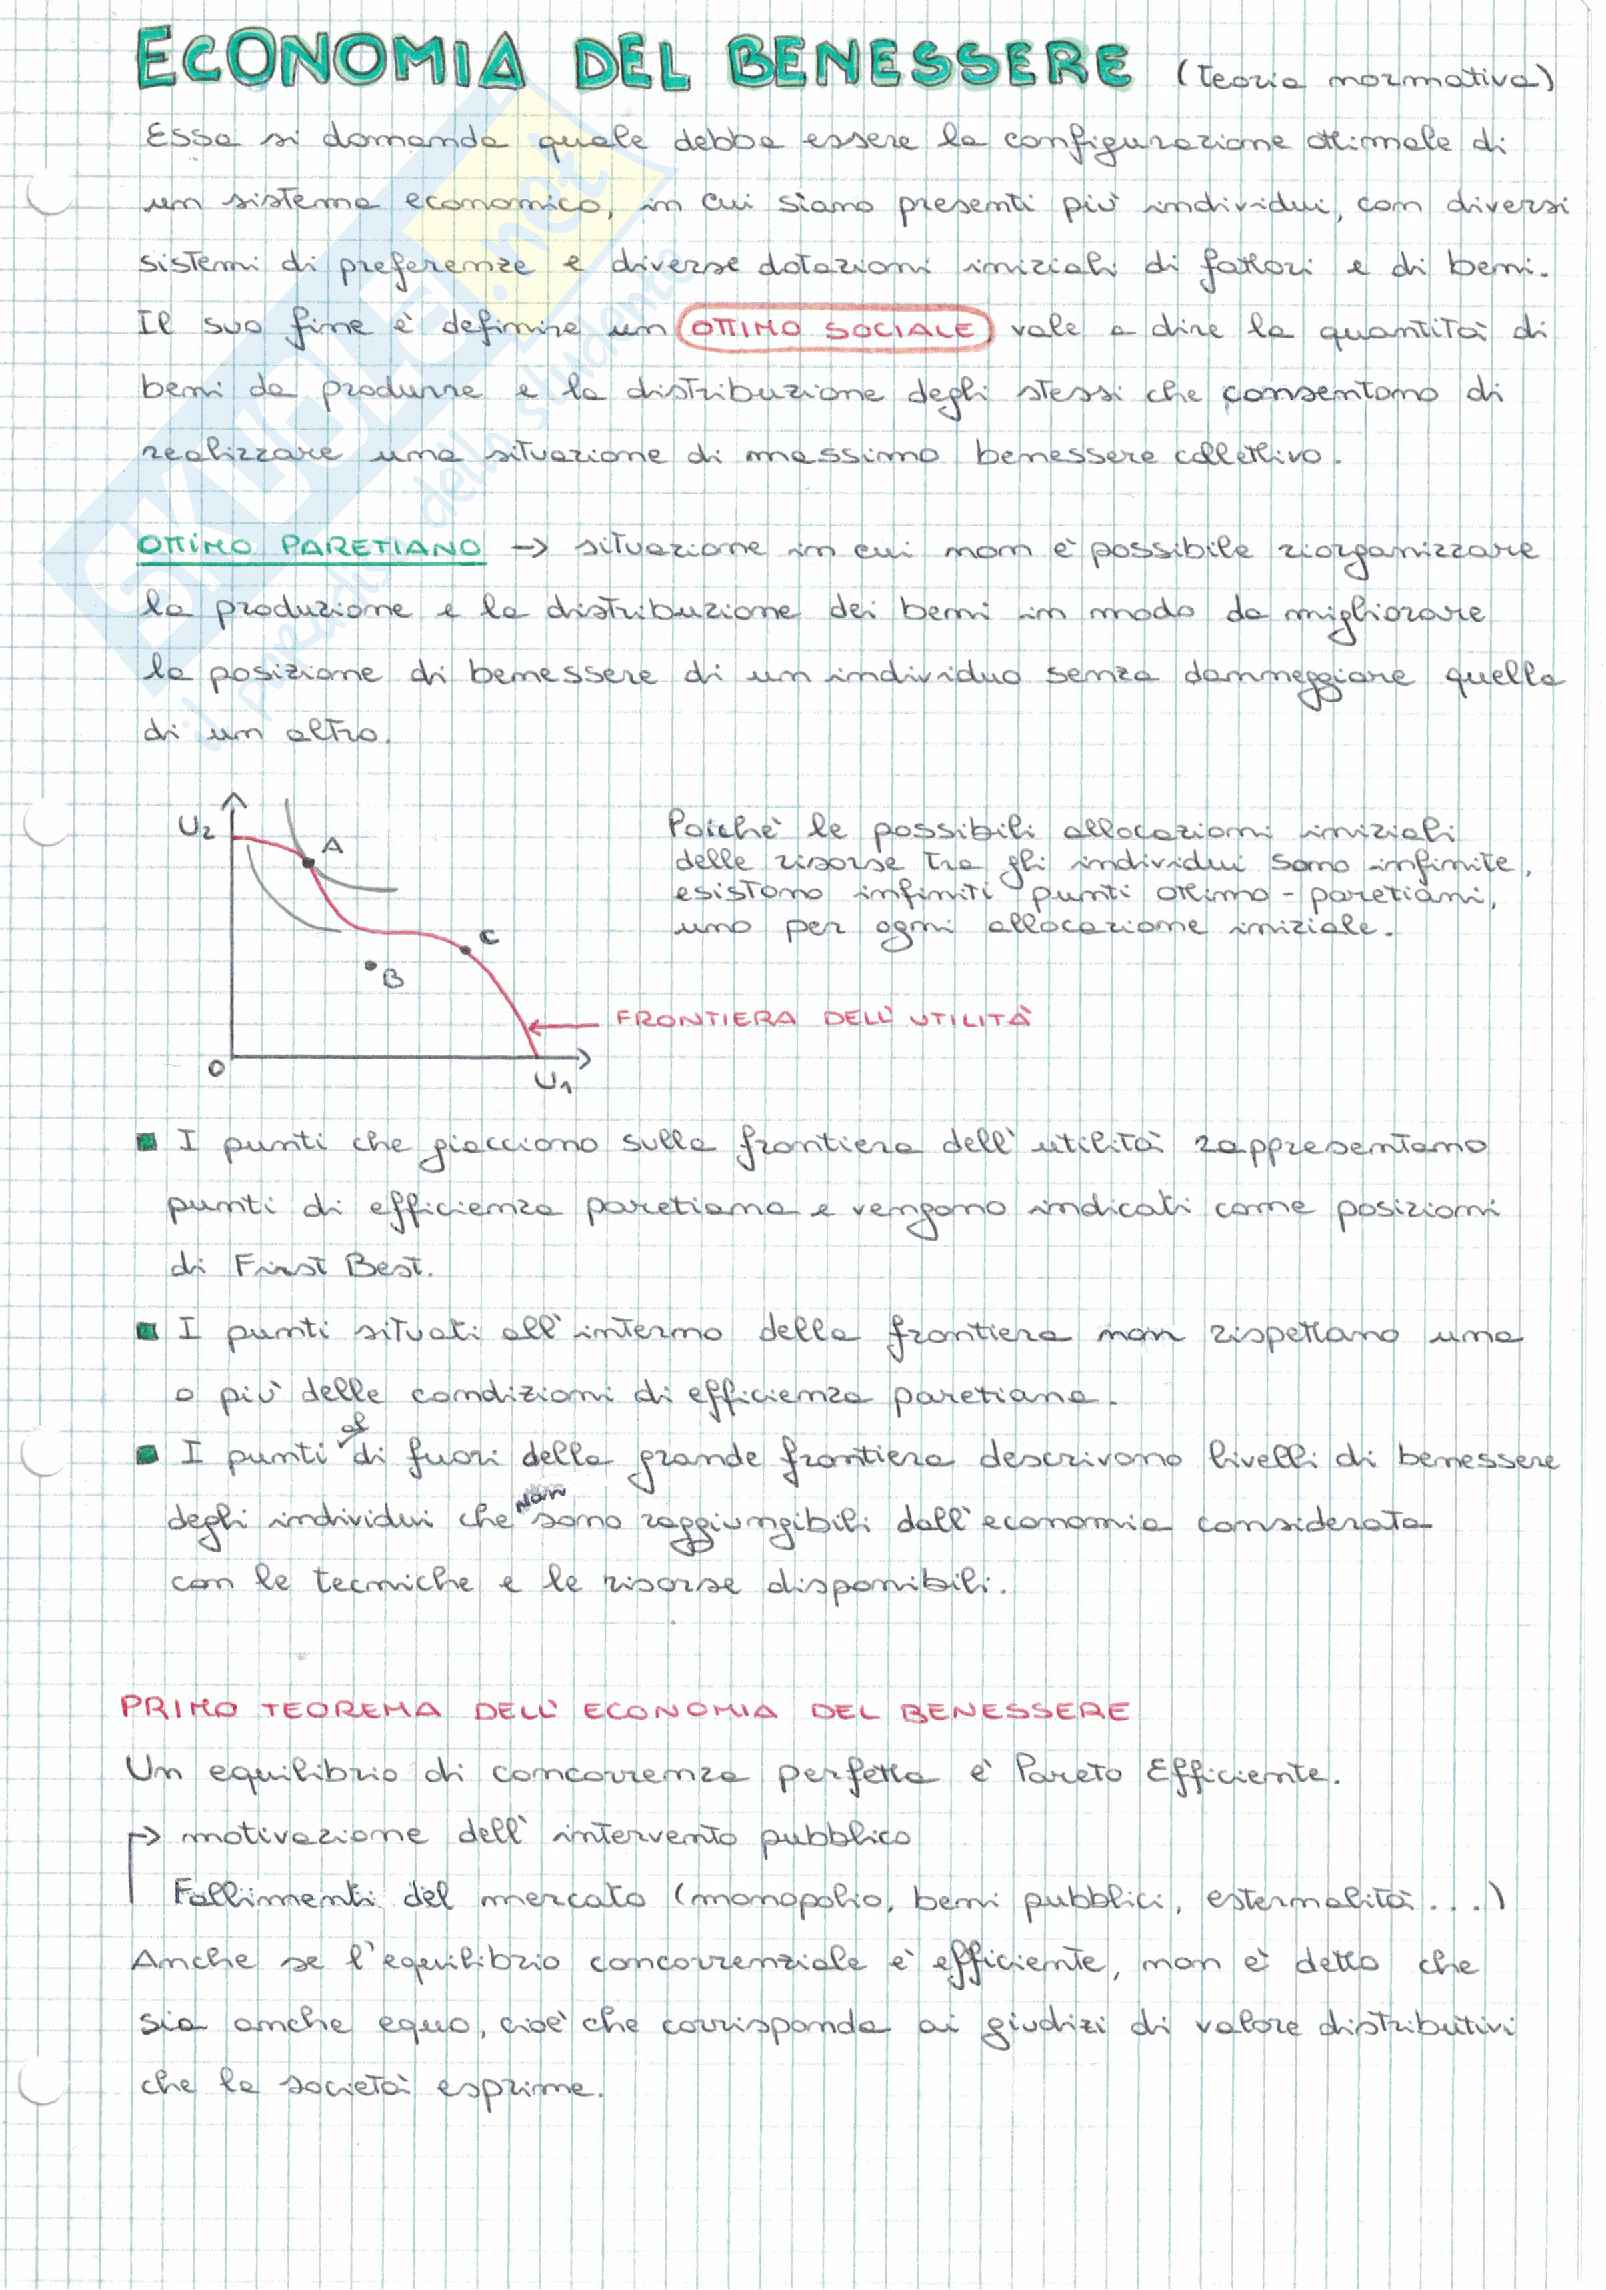 ECONOMIA DEL BENESSERE (teoria normativa)
Essa si domanda quale debba essere la configurazione ottimale di
un sistema economico, in cui siano presenti più individui, con diversi
sistemi di preferenze e diverse dotazioni iniziali di fattori e di beni.
Il suo fine è definire un OTTIMO SOCIALE vale a dire la quantità di
beni da produrre e la distribuzione degli stessi che consentono di
realizzare una situazione di massimo benessere collettivo.
OTTIMO PARETIANO → situazione in cui non è possibile riorganizzare
la produzione e la distribuzione dei beni in modo da migliorare
la posizione di benessere di un individuo senza danneggiare quella
di un altro.
U2
A
C
B
O
U1
Poichè le possibili allocazioni iniziali
delle risorse tra gli individui sono infinite,
esistono infiniti punti ottimo-paretiani,
uno per ogni allocazione iniziale.
FRONTIERA DELL'UTILITÀ
■ I punti che giacciono sulla frontiera dell'utilità rappresentano
punti di efficienza paretiana e vengono indicati come posizioni
di First Best.
■ I punti situati all'interno della frontiera non rispettano una
o più delle condizioni di efficienza paretiana.
■ I punti al di fuori della grande frontiera descrivono livelli di benessere
degli individui che non sono raggiungibili dall'economia considerata
con le tecniche e le risorse disponibili.
PRIMO TEOREMA DELL'ECONOMIA DEL BENESSERE
Un equilibrio di concorrenza perfetta è Pareto Efficiente.
→ motivazione dell'intervento pubblico
Fallimenti del mercato (monopolio, beni pubblici, esternalità....)
Anche se l'equilibrio concorrenziale è efficiente, non è detto che
sia anche equo, cioè che corrisponda ai giudizi di valore distributivi
che la società esprime.